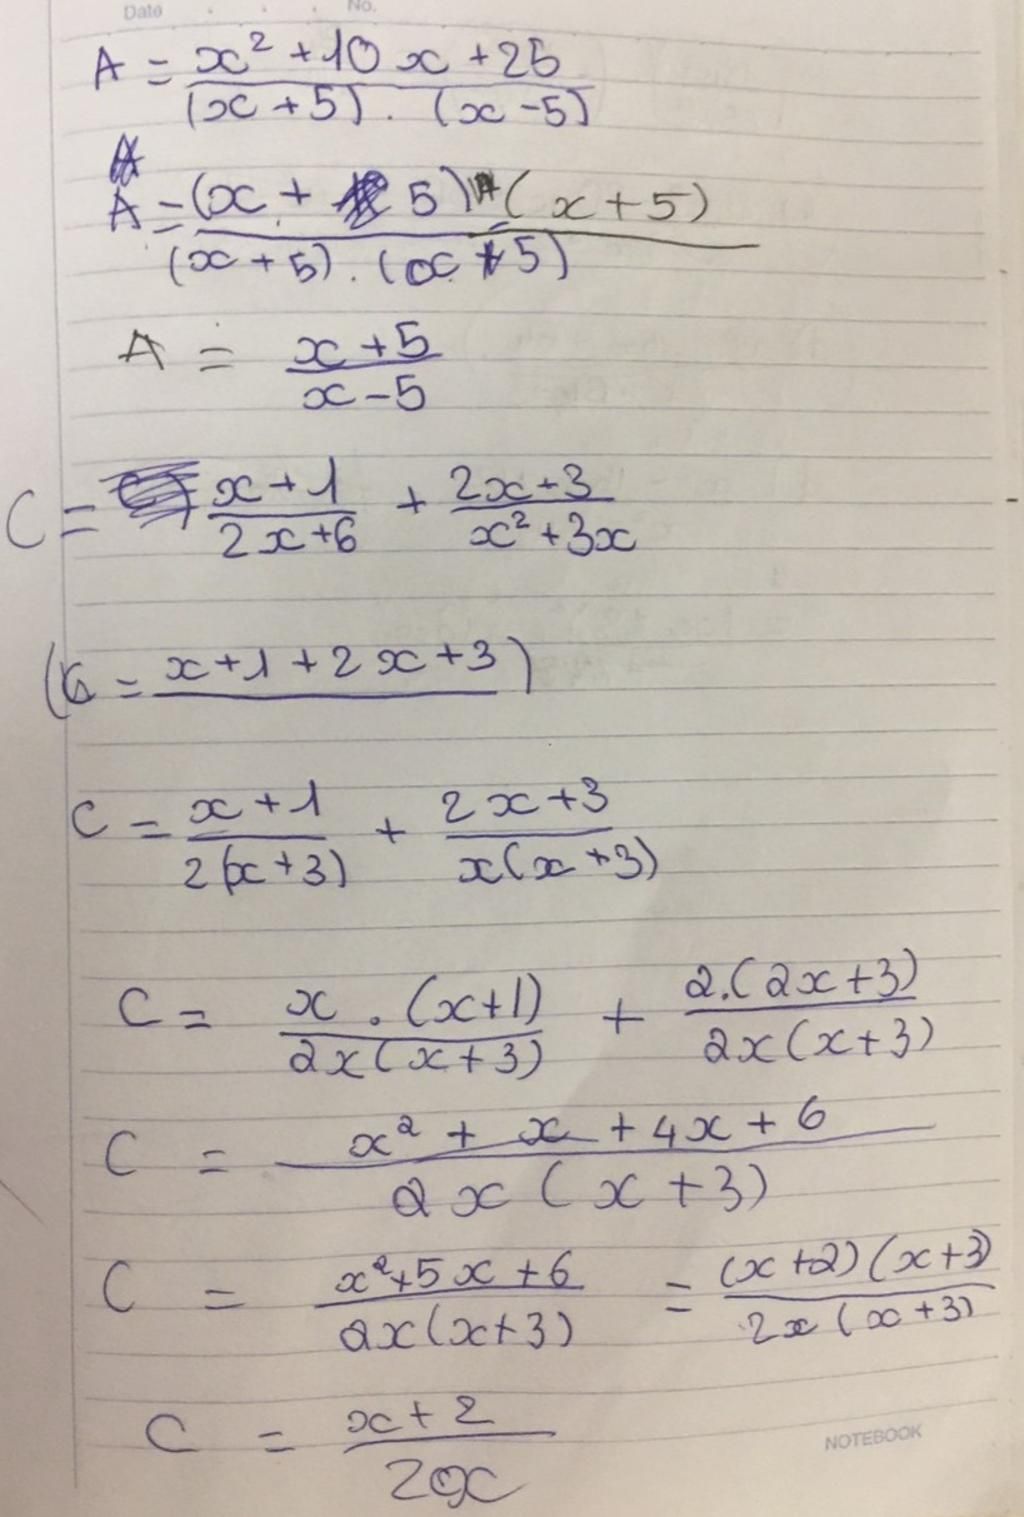 Date No.
A = x² + 10x + 25
(x + 5) . (x - 5)
A = (x + 5) (x + 5)
(x + 5) . (x - 5)
A = x + 5
x - 5
C = x + 1 + 2x + 3
2x + 6 x² + 3x
(C = x + 1 + 2x + 3)
C = x + 1 + 2x + 3
2(x + 3) x(x + 3)
C = x . (x + 1) + 2.(2x + 3)
2x(x + 3) 2x(x + 3)
C = x² + x + 4x + 6
2x (x + 3)
C = x² + 5x + 6 = (x + 2)(x + 3)
2x(x + 3) 2x(x + 3)
C = x + 2
2x
NOTEBOOK